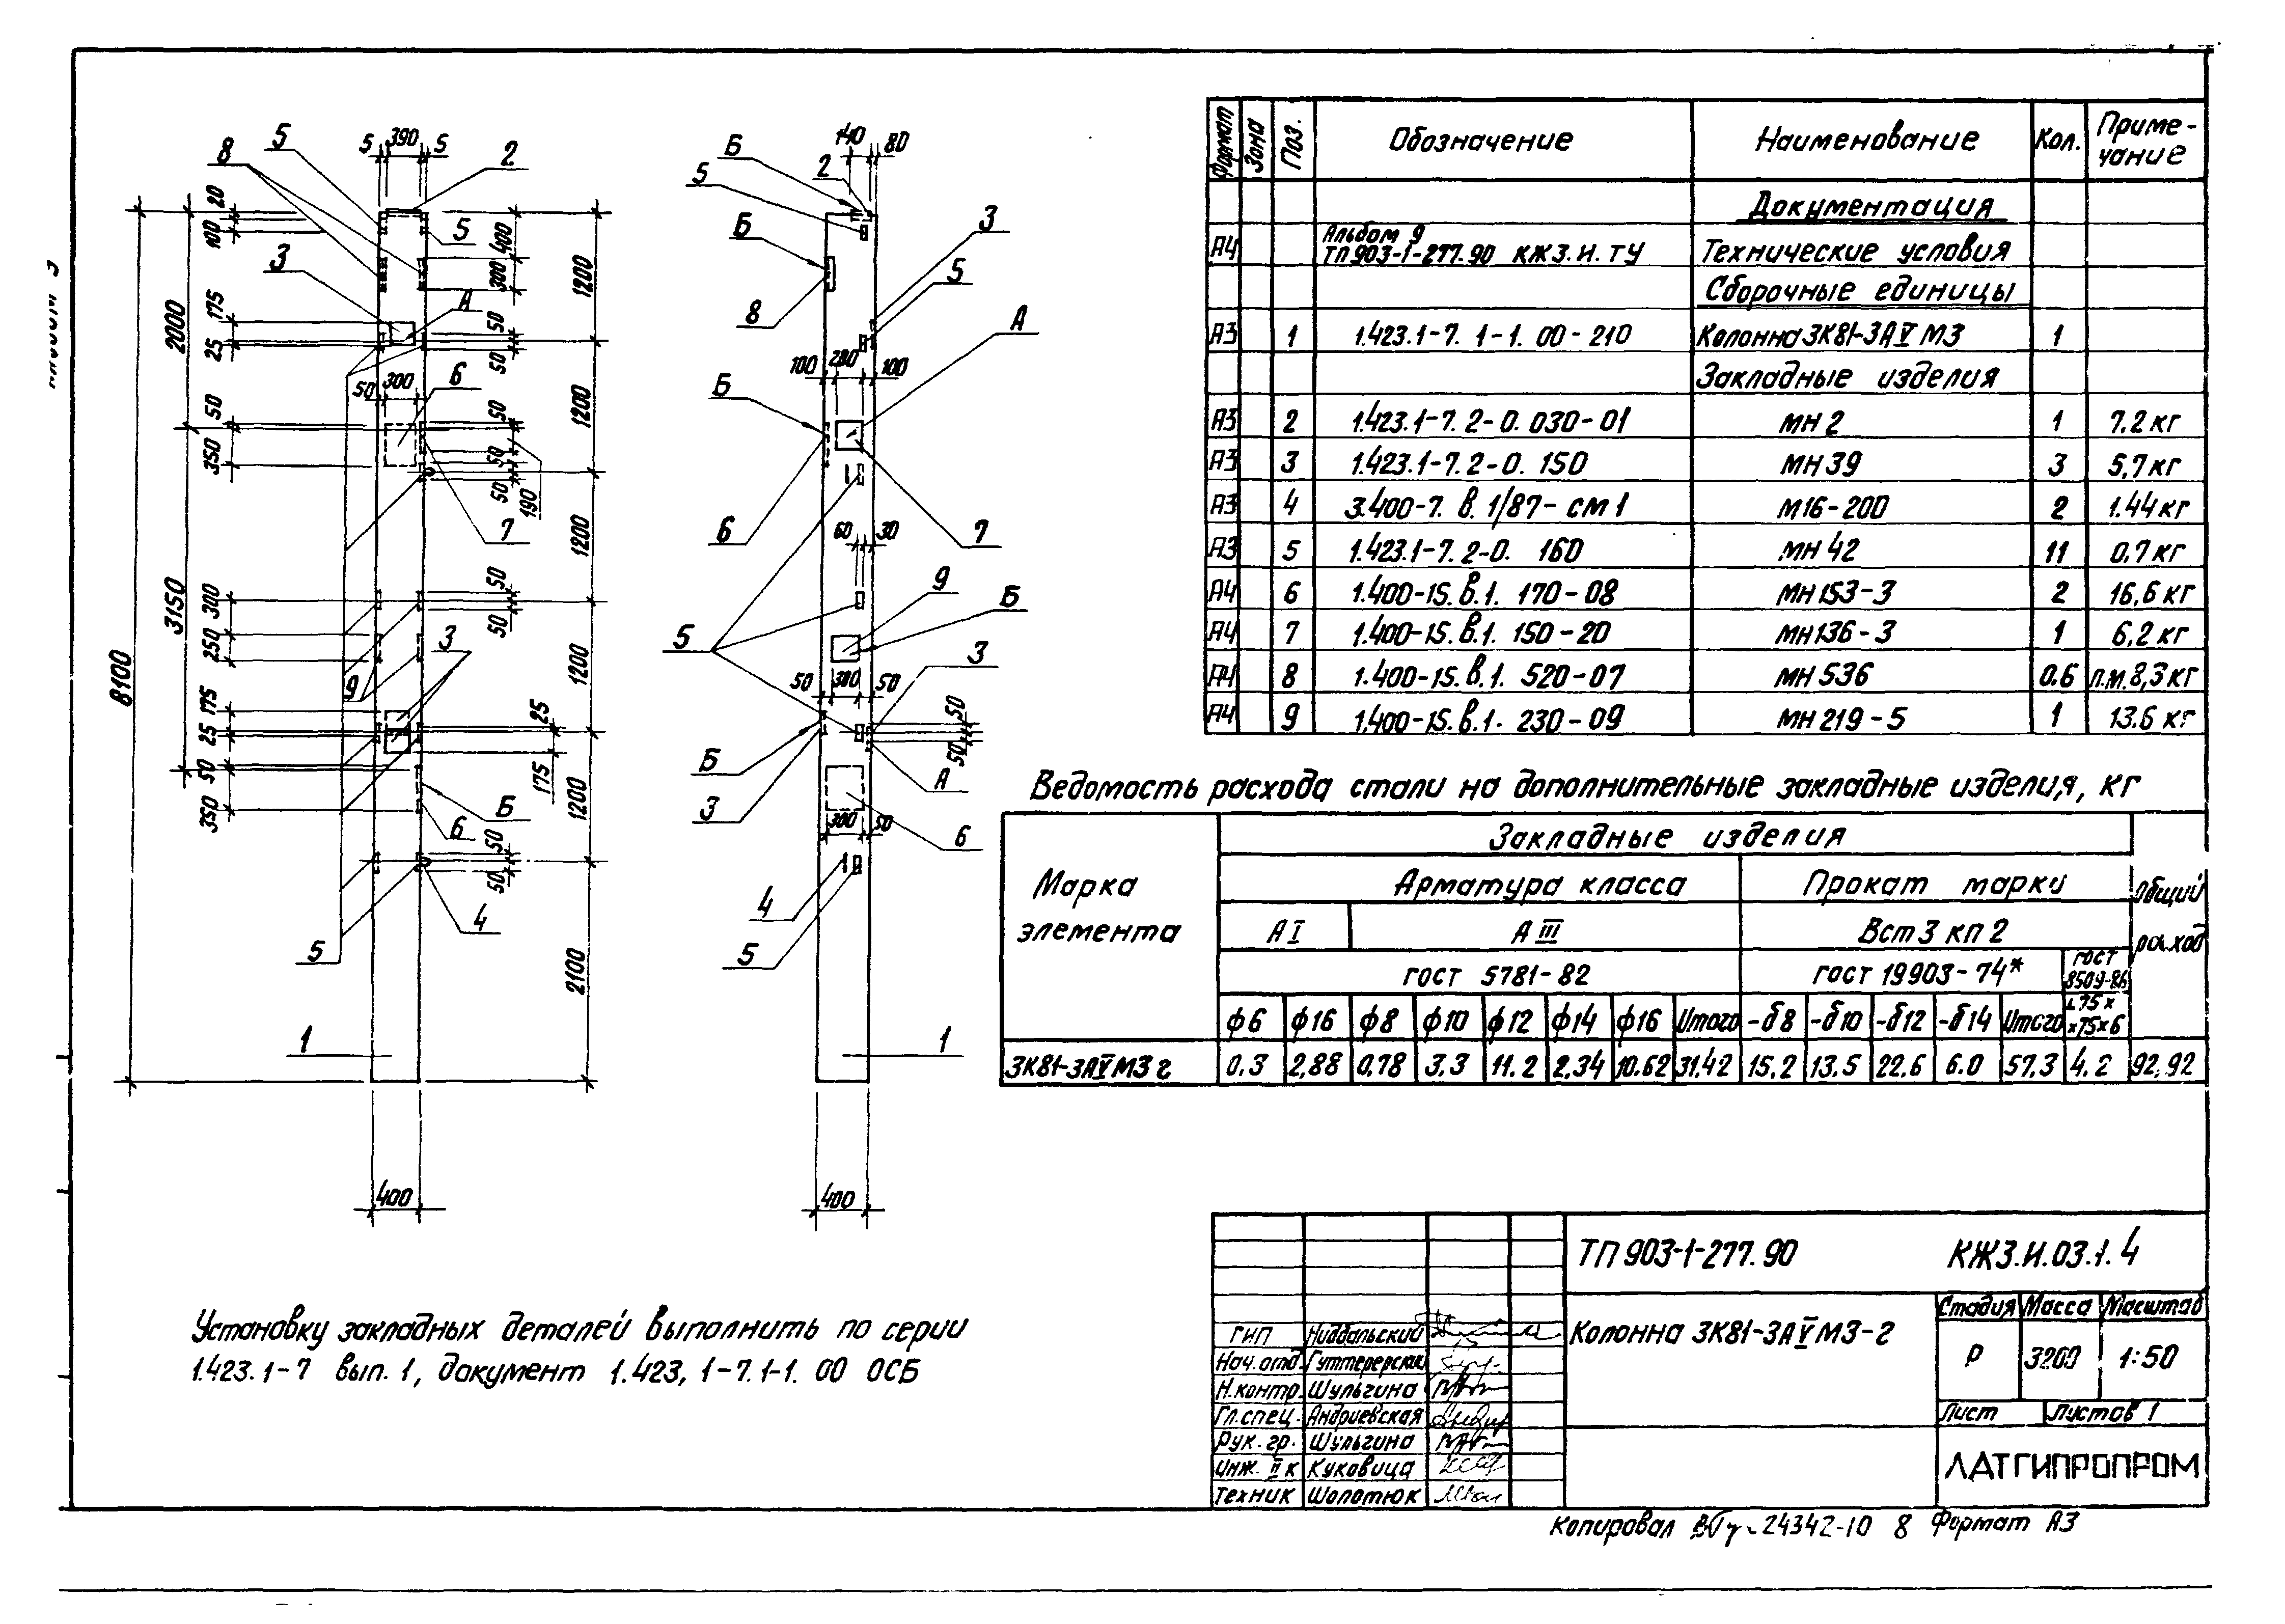 5 390 5
8 5 2
20
100
3
5
400
300
1200
A
175
2000
25
50
50
50 300 6
50
350
50
190
50
50
1200
7
1200
3150
300
250
50
50
3
9
175
25
25
175
1200
8100
50
350
Б
6
1200
50
50
4
5
2100
1
400
140
80
Б
2
5
Б
3
5
8
А
100 200 100
Б
6
7
60 30
9
Б
5
3
50 300 50
50
50
Б
А
3
300 50
6
4
5
1
400
Формат Зона Поз. Обозначение Наименование Кол. Приме-
чание
Документация
А4 Альбом 9
ТП 903-1-277.90 КЖ3.И.ТУ Технические условия
Сборочные единицы
А3 1 1.423.1-7. 1-1. 00-210 Колонна 3К81-3АⅤМ3 1
Закладные изделия
А3 2 1.423.1-7. 2-0. 030-01 МН2 1 7.2 кг
А3 3 1.423.1-7. 2-0. 150 МН39 3 5,7 кг
А3 4 3.400-7. В. 1/87-см1 М16-200 2 1.44 кг
А3 5 1.423.1-7. 2-0. 160 МН42 11 0,7 кг
А4 6 1.400-15. В.1. 170-08 МН153-3 2 16,6 кг
А4 7 1.400-15. В.1. 150-20 МН136-3 1 6,2 кг
А4 8 1.400-15. В.1. 520-07 МН536 0.6 п.м. 8,3 кг
А4 9 1.400-15. В.1. 230-09 МН219-5 1 13.6 кг
Ведомость расхода стали на дополнительные закладные изделия, кг
Марка
элемента
Закладные изделия
Общий
расход
Арматура класса Прокат марки
АⅠ АⅢ Вст3 кп2
ГОСТ 5781-82 ГОСТ 19903-74* ГОСТ
8509-86
ф6 ф16 ф8 ф10 ф12 ф14 ф16 Итого -δ8 -δ10 -δ12 -δ14 Итого ∟75×
×75×6
3К81-3АⅤМ3г 0,3 2,88 0,78 3.3 11.2 2,34 10.62 31.42 15,2 13.5 22.6 6.0 57.3 4.2 92,92
Установку закладных деталей выполнить по серии
1.423.1-7 вып. 1, документ 1.423, 1-7.1-1. 00 ОСБ
ТП 903-1-277.90 КЖ3.И.03.1.4
Колонна 3К81-3АⅤМ3-г
Стадия Масса Масштаб
Р 3200 1:50
Лист Листов 1
ЛАТГИПРОПРОМ
ГИП Нидбальский
Нач.отд. Гуттерерский
Н.контр. Шульгина
Гл.спец. Андриевская
Рук. гр. Шульгина
Инж. Ⅱ к Куковица
Техник Шолотюк
Копировал 24342-10 8 Формат А3